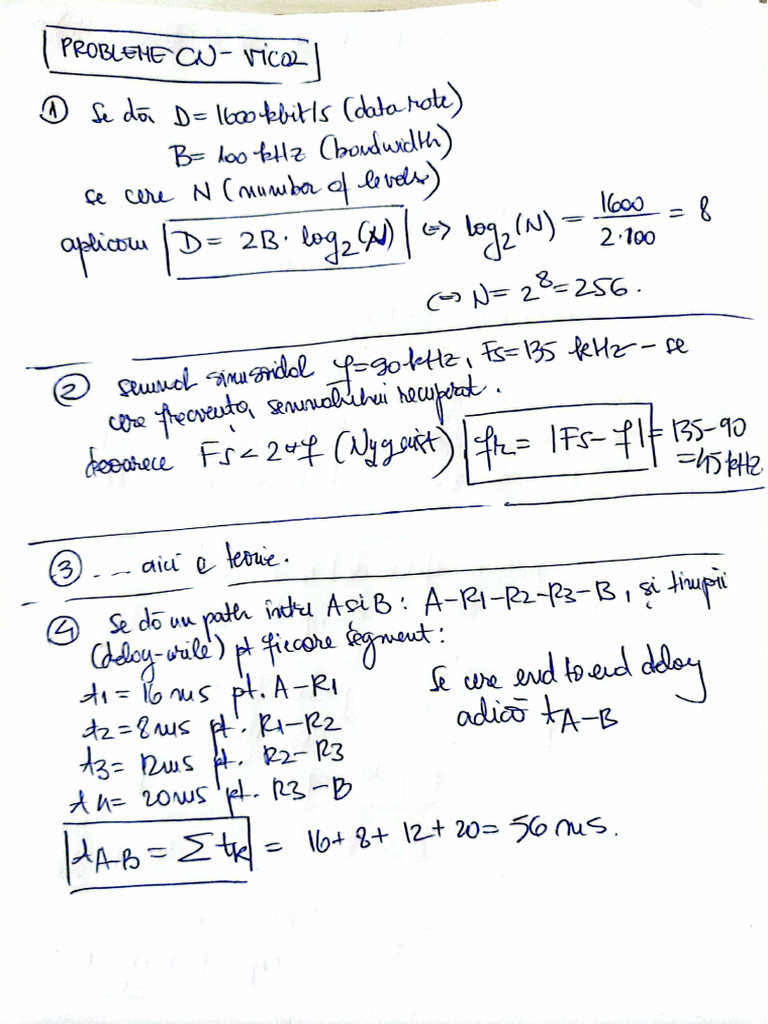 PROBLEME CN - VICOL
① Se dă D = 1600 kbit/s (data rate)
B = 100 kHz (bandwidth)
se cere N (number of levels)
aplicăm D = 2B · log₂(N) <=> log₂(N) = 1600 / 2·100 = 8
<=> N = 2⁸ = 256.
② semnal sinusoidal f = 90 kHz, Fs = 135 kHz - se
cere frecvența semnalului recuperat.
deoarece Fs < 2*f (Nyquist) fr = |Fs - f| = 135-90
= 45 kHz
③ ... aici e teorie.
④ Se dă un path între A și B: A-R1-R2-R3-B, și timpii
(delay-urile) pt fiecare segment:
t1 = 16 ms pt. A-R1
t2 = 8 ms pt. R1-R2
t3 = 12 ms pt. R2-R3
t4 = 20 ms pt. R3-B
Se cere end to end delay
adică tA-B
tA-B = Σ tk = 16 + 8 + 12 + 20 = 56 ms.